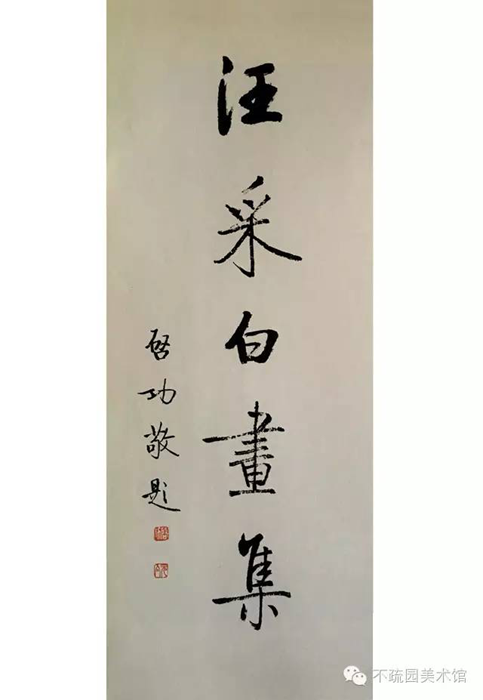 汪采白畫集
啓功敬題
不疏园美术馆